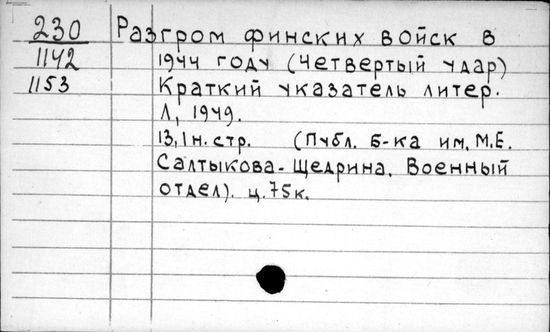 230 Разгром финских войск в
1142 1944 году (Четвертый удар)
1153 Краткий указатель литер.
Л, 1949.
13,1н.стр. (Публ. Б-ка им. М.Е.
Салтыкова-Щедрина. Военный
отдел). ц.75к.